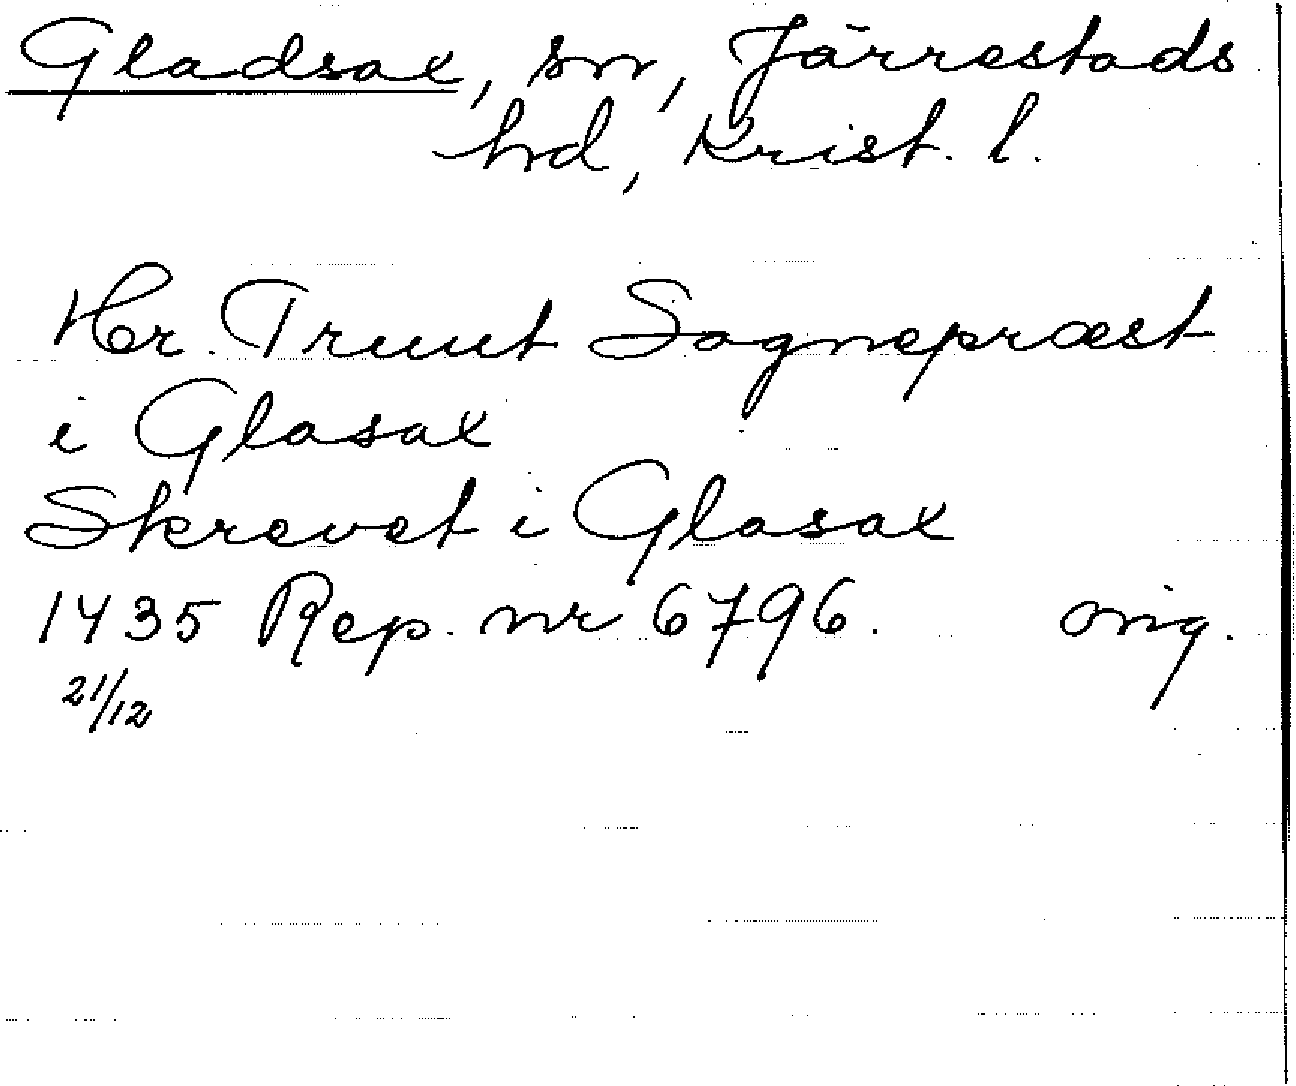 Gladsax, sn, Järrestads
hd, Krist. l.
Hr. Truut Sognepræst
i Glasax
Skrevet i Glasax
1435 Rep. nr 6796. orig.
21/12